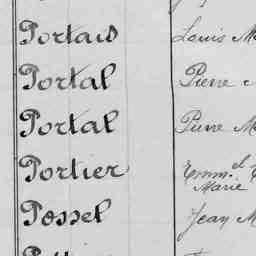 Portais Louis M
Portal Pierre
Portal Pierre M
Portier Emm.el
Marie
Possel Jean M